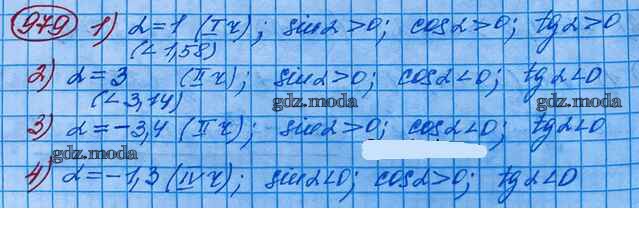 979 1) α = 1 (I ч); sin α > 0; cos α > 0; tg α > 0
(< 1,58)
2) α = 3 (II ч); sin α > 0; cos α < 0; tg α < 0
(< 3,14)
gdz.moda gdz.moda
3) α = -3,4 (II ч); sin α > 0; cos α < 0; tg α < 0
gdz.moda
4) α = -1,3 (IV ч); sin α < 0; cos α > 0; tg α < 0